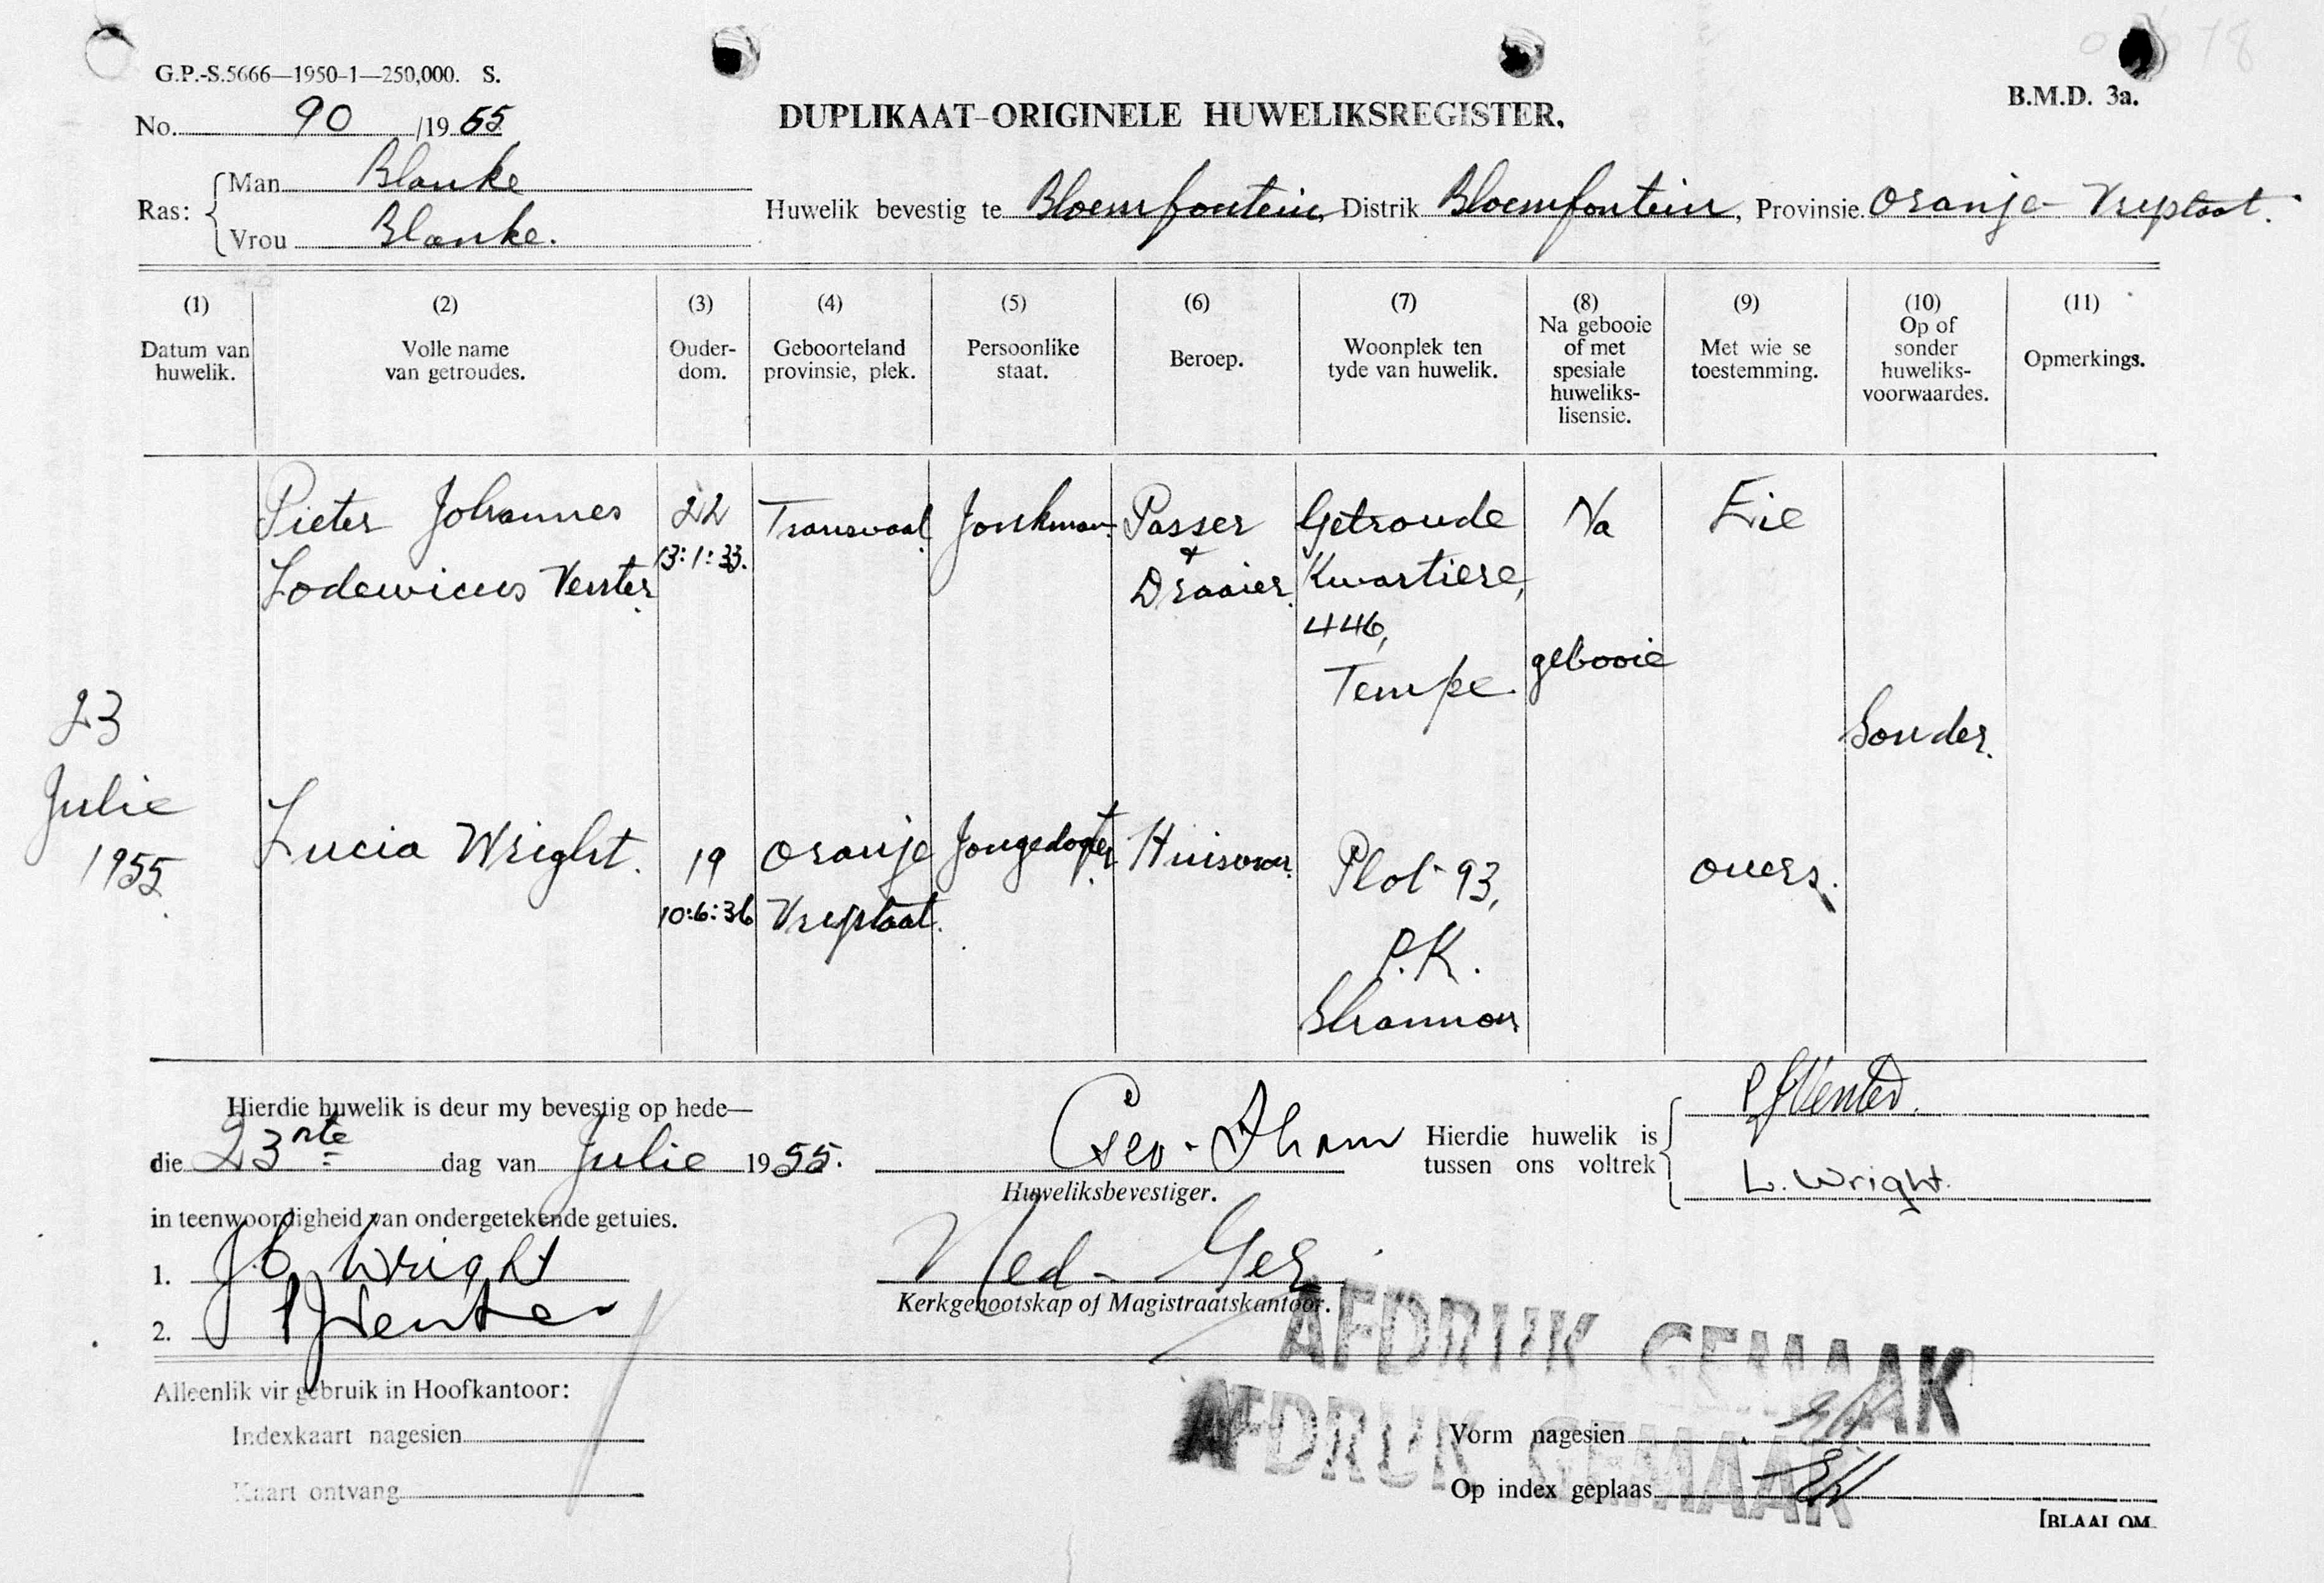 G.P.-S.5666—1950-1—250,000. S.
B.M.D. 3a.
No. 90 /1955
DUPLIKAAT-ORIGINELE HUWELIKSREGISTER.
Ras: Man Blanke
Vrou Blanke.
Huwelik bevestig te Bloemfontein, Distrik Bloemfontein, Provinsie Oranje-Vrystaat.
(1) (2) (3) (4) (5) (6) (7) (8) (9) (10) (11)
Datum van huwelik.
Volle name van getroudes.
Ouder-dom.
Geboorteland provinsie, plek.
Persoonlike staat.
Beroep.
Woonplek ten tyde van huwelik.
Na gebooie of met spesiale huweliks-lisensie.
Met wie se toestemming.
Op of sonder huweliks-voorwaardes.
Opmerkings.
23 Julie 1955.
Pieter Johannes Lodewicus Venter.
22
13:1:33.
Transvaal.
Jonkman.
Passer + Draaier.
Getroude Kwartiere, 446, Tempe.
Na gebooie
Eie
Sonder.
Lucia Wright.
19
10:6:36
Oranje Vrystaat.
Jongedogter.
Huisvrou.
Plot 93, P.K. Shannon
Ouers.
Hierdie huwelik is deur my bevestig op hede—
die 23ste dag van Julie 1955.
Huweliksbevestiger.
Hierdie huwelik is tussen ons voltrek
P J Venter.
L. Wright.
in teenwoordigheid van ondergetekende getuies.
1. Wright
2. PJ Venter
Ned-Ger.
Kerkgenootskap of Magistraatskantoor.
AFDRUK GEMAAK
AFDRUK GEMAAK
Alleenlik vir gebruik in Hoofkantoor:
Indexkaart nagesien
Kaart ontvang
Vorm nagesien
Op index geplaas
[BLAAI OM